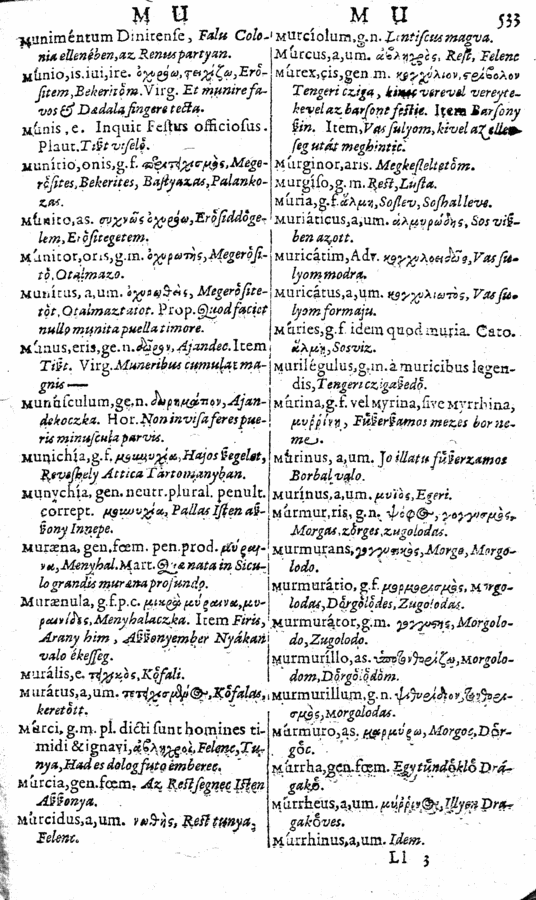 M U
M U 533
Muniméntum Dinitense, Falu Colo-
nia ellenében, az Renus partyan.
Múnio, is. iui, ire. ὀχυρόω, τειχίζω, Erő-
sitem, Bekeritőm. Virg. Et munire fa-
vos & Dædala fingere tecta.
Múnis, e. Inquit Festus officiosus.
Plaut. Tißt viselő.
Munítio, onis, g.f. Mege-
rősites, Bekerites, Bastyazas, Palanko-
zas.
Muníto, as. συχνῶς ὀχυρόω, Erősiddőge-
lem, Erősitegetem.
Múnitor, oris, g.m. ὀχυρωτὴς, Megerősi-
tő, Otalmazo.
Munítus, a, um. Megerősite-
tőt, Otalmaztatot. Prop. Quod faciet
nullo munita puella timore.
Múnus, eris, ge. n. δῶρον, Ajandec. Item
Tißt. Virg. Muneribus cumulat ma-
gnis —
Munúsculum, ge. n. Ajan-
dekoczka. Hor. Non invisa feres pue-
ris minuscula parvis.
Munichía, g.f. μουνυχία, Hajos ßegelet,
Reveshely Attica Tartomanyban.
Munychía, gen. neutr. plural. penult.
corrept. μουνυχία, Pallas Isten aß-
ßony Innepe.
Muræna, gen. fœm. pen. prod. μύραι-
να, Menyhal. Mart. Quæ nata in Sicu-
lo grandis muræna profundo.
Murænula, g.f.p.c. μικρὰ μύραινα, μυ-
ραινίδιον, Menyhalaczka. Item Firis,
Arany him, Aßßonyember Nyákan
valo ékesseg.
Murális, e. τειχικὸς, Kőfali.
Murátus, a, um. Kőfalas,
keretőtt.
Múrci, g.m. pl. dicti sunt homines ti-
midi & ignavi, ἀβληχροὶ, Felenc, Tu-
nya, Had es dolog futo emberec.
Múrcia, gen. fœm. Az Rest segnec Isten
Aßßonya.
Múrcidus, a, um. νωθὴς, Rest tunya,
Felenc.
Murcíolum, g.n. Lentiscus magva.
Múrcus, a, um. ἀβληχρὸς, Rest, Felenc
Múrex, çis, gen m. κογχύλιον,
Tengeri cziga, kinec verevel vereyte-
kevel az barsont festic. Item Barsony
ßin. Item, Vas sulyom, kivel az ellen-
seg utát meghintic.
Múrginor, aris. Megkesleltetőm.
Murgíso, g.m. Rest, Lusta.
Múria, g.f. ἅλμη, Soslev, Soshal leve.
Muriáticus, a, um. ἁλμυρώδης, Sos viß-
ben azott.
Muricátim, Adv. κογχυλοειδῶς, Vas su-
lyom modra.
Muricátus, a, um. κογχυλιωτὸς, Vas su-
lyom formaju.
Múries, g.f. idem quod muria. Cato.
ἅλμη, Sosviz.
Murilégulus, g.m. à muricibus legen-
dis, Tengeri cziga ßedő.
Múrina, g.f. vel Myrina, sive Myrrhina,
μυρρίνη, Fűßerßamos mezes bor ne-
me.
Múrinus, a, um. Jo illatu fűßerzamos
Borbal valo.
Murínus, a, um. μυϊὸς, Egeri.
Múrmur, ris, g.n. ψόφος, γογγυσμὸς,
Morgas, zőrges, zugolodas.
Murmurans, Morgo, Morgo-
lodo.
Murmurátio, g.f. Morgo-
lodas, Dőrgőlődes, Zugolodas.
Murmurátor, g.m. γογγυστὴς, Morgolo-
do, Zugolodo.
Murmuríllo, as. Morgolo-
dom, Dőrgőlődőm.
Murmuríllum, g.n.
Morgolodas.
Múrmuro, as. μορμύρω, Morgoc, Dőr-
gőc.
Múrrha, gen. fœm. Egyűtűndőklő Drá-
gakő.
Múrrheus, a, um. Illyen Dra-
gakőves.
Múrrhinus, a, um. Idem.
Ll 3